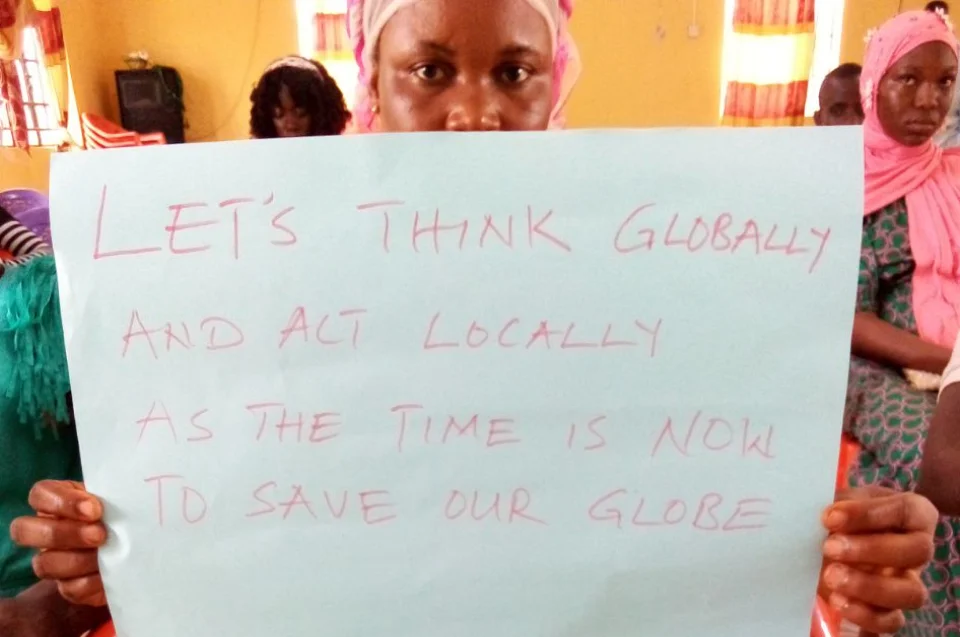 LET'S THINK GLOBALLY
AND ACT LOCALLY
AS THE TIME IS NOW
TO SAVE OUR GLOBE